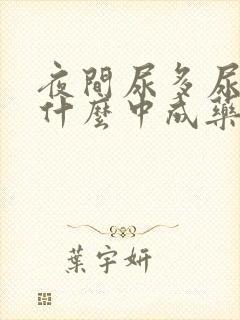 夜間尿多尿
什麼中成藥
葉宇妍